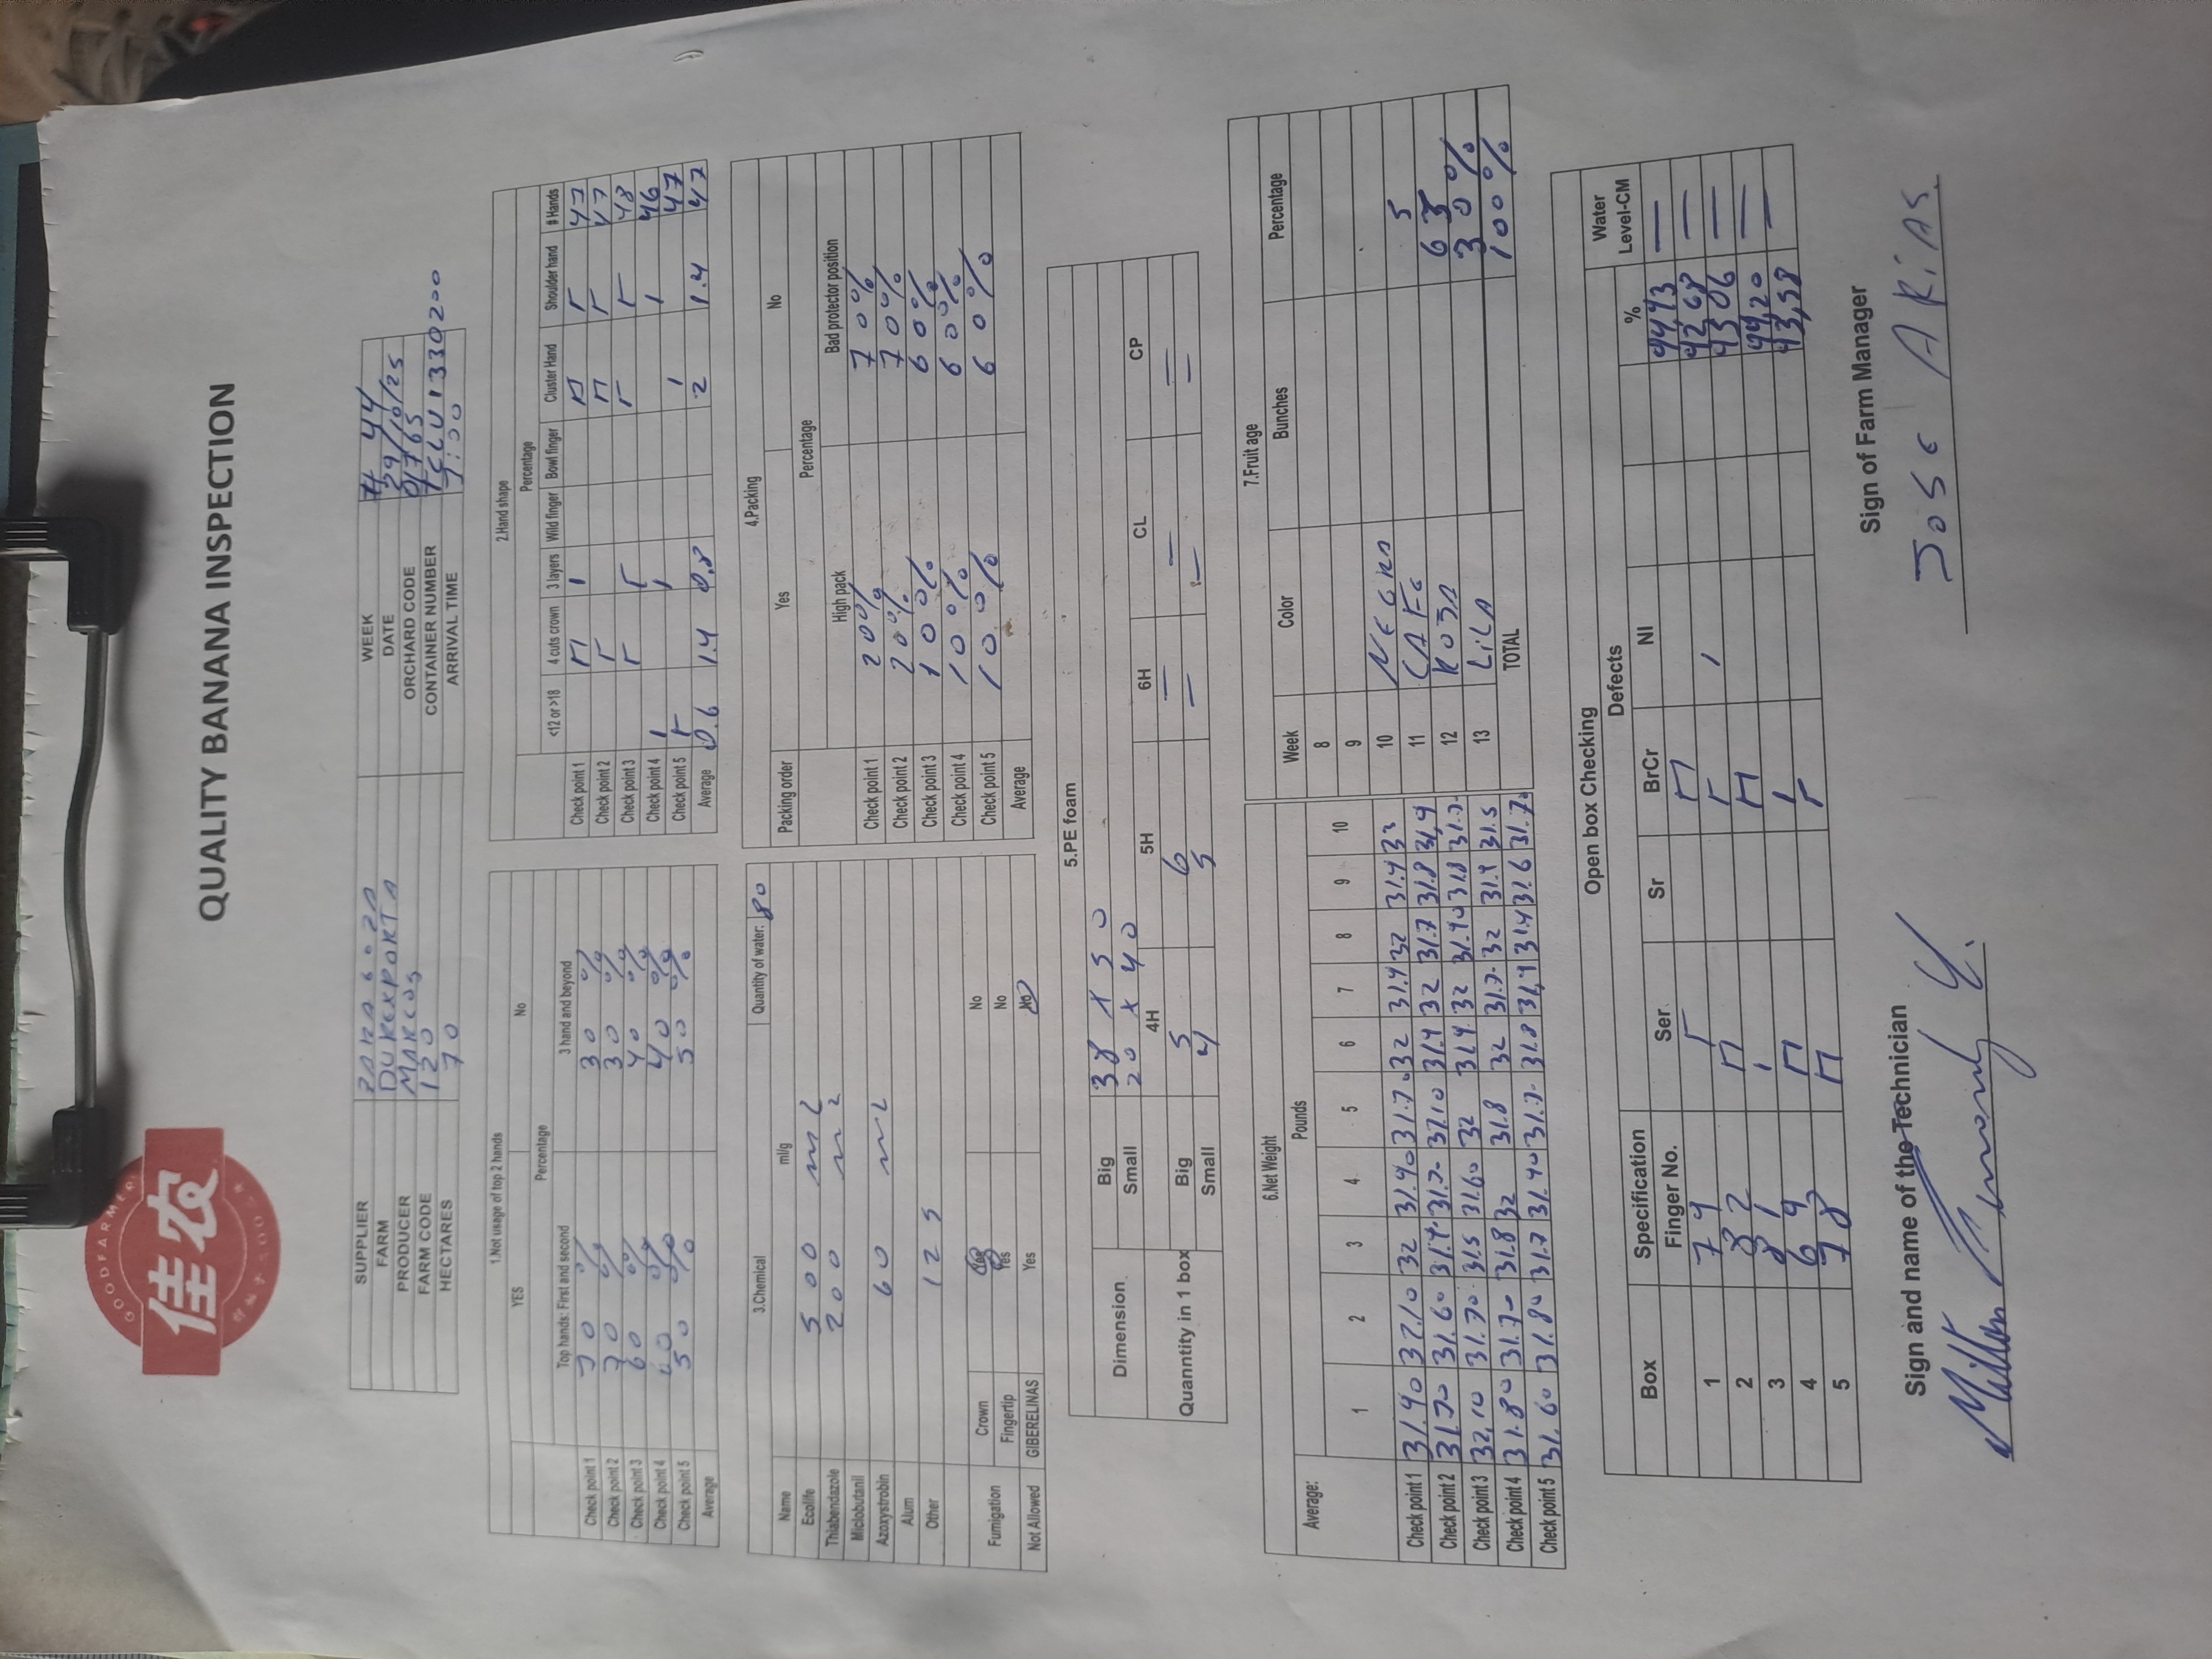 GOODFARMER
佳农
QUALITY BANANA INSPECTION
SUPPLIER ZARAGOZA WEEK # 44
FARM DUREXPORTA DATE 29/10/25
PRODUCER MARCOS ORCHARD CODE 01765
FARM CODE 120 CONTAINER NUMBER TCLU1330200
HECTARES 70 ARRIVAL TIME 7:00
1.Not usage of top 2 hands
YES No
Percentage
Top hands: First and second 3 hand and beyond
Check point 1 70 % 30 %
Check point 2 70 % 30 %
Check point 3 60 % 40 %
Check point 4 60 % 40 %
Check point 5 50 % 50 %
Average
2.Hand shape
Percentage
<12 or >18 4 cuts crown 3 layers Wild finger Bowl finger Cluster Hand Shoulder hand # Hands
Check point 1 47
Check point 2 47
Check point 3 48
Check point 4 1 1 1 46
Check point 5 1 47
Average 0.6 1.4 0.8 2 1.4 47
3.Chemical Quantity of water: 80
Name ml/g
Ecolife 500 mL
Thiabendazole 200 mL
Miclobutanil
Azoxystrobin 60 mL
Alum
Other 125
Fumigation Crown Yes No
Fingertip Yes No
Not Allowed GIBERELINAS Yes No
4.Packing
Packing order Yes No
Percentage
High pack Bad protector position
Check point 1 20% 70%
Check point 2 20% 70%
Check point 3 10% 60%
Check point 4 10% 60%
Check point 5 10% 60%
Average
5.PE foam
Dimension Big 38 X 50
Small 20 X 40
4H 5H 6H CL CP
Quanntity in 1 box Big 5 6 — — —
Small 4 5 — — —
6.Net Weight
Average: Pounds
1 2 3 4 5 6 7 8 9 10
Check point 1 31.90 32.10 32 31.90 31.70 32 31.9 32 31.9 33
Check point 2 31.70 31.60 31.9 31.70 32.10 31.9 32 31.7 31.8 31,9
Check point 3 32,10 31.70 31.5 31.60 32 31.9 32 31.90 31.8 31.7
Check point 4 31.80 31.70 31.8 32 31.8 32 31.7 32 31.9 31.5
Check point 5 31.60 31.80 31.7 31.90 31.7 31.8 31,9 31.9 31.6 31.7
7.Fruit age
Week Color Bunches Percentage
8
9
10 NEGRA
11 CAFE 5
12 ROSA 65
13 LILA 30%
TOTAL 100%
Open box Checking
Box Specification Defects Water Level-CM
Finger No. Ser Sr BrCr NI %
1 79 94,93 —
2 82 1 92,68 —
3 81 1 —
4 69 1 94,20 —
5 78 93,58 —
Sign and name of the Technician
Milton
Sign of Farm Manager
JOSE ARIAS